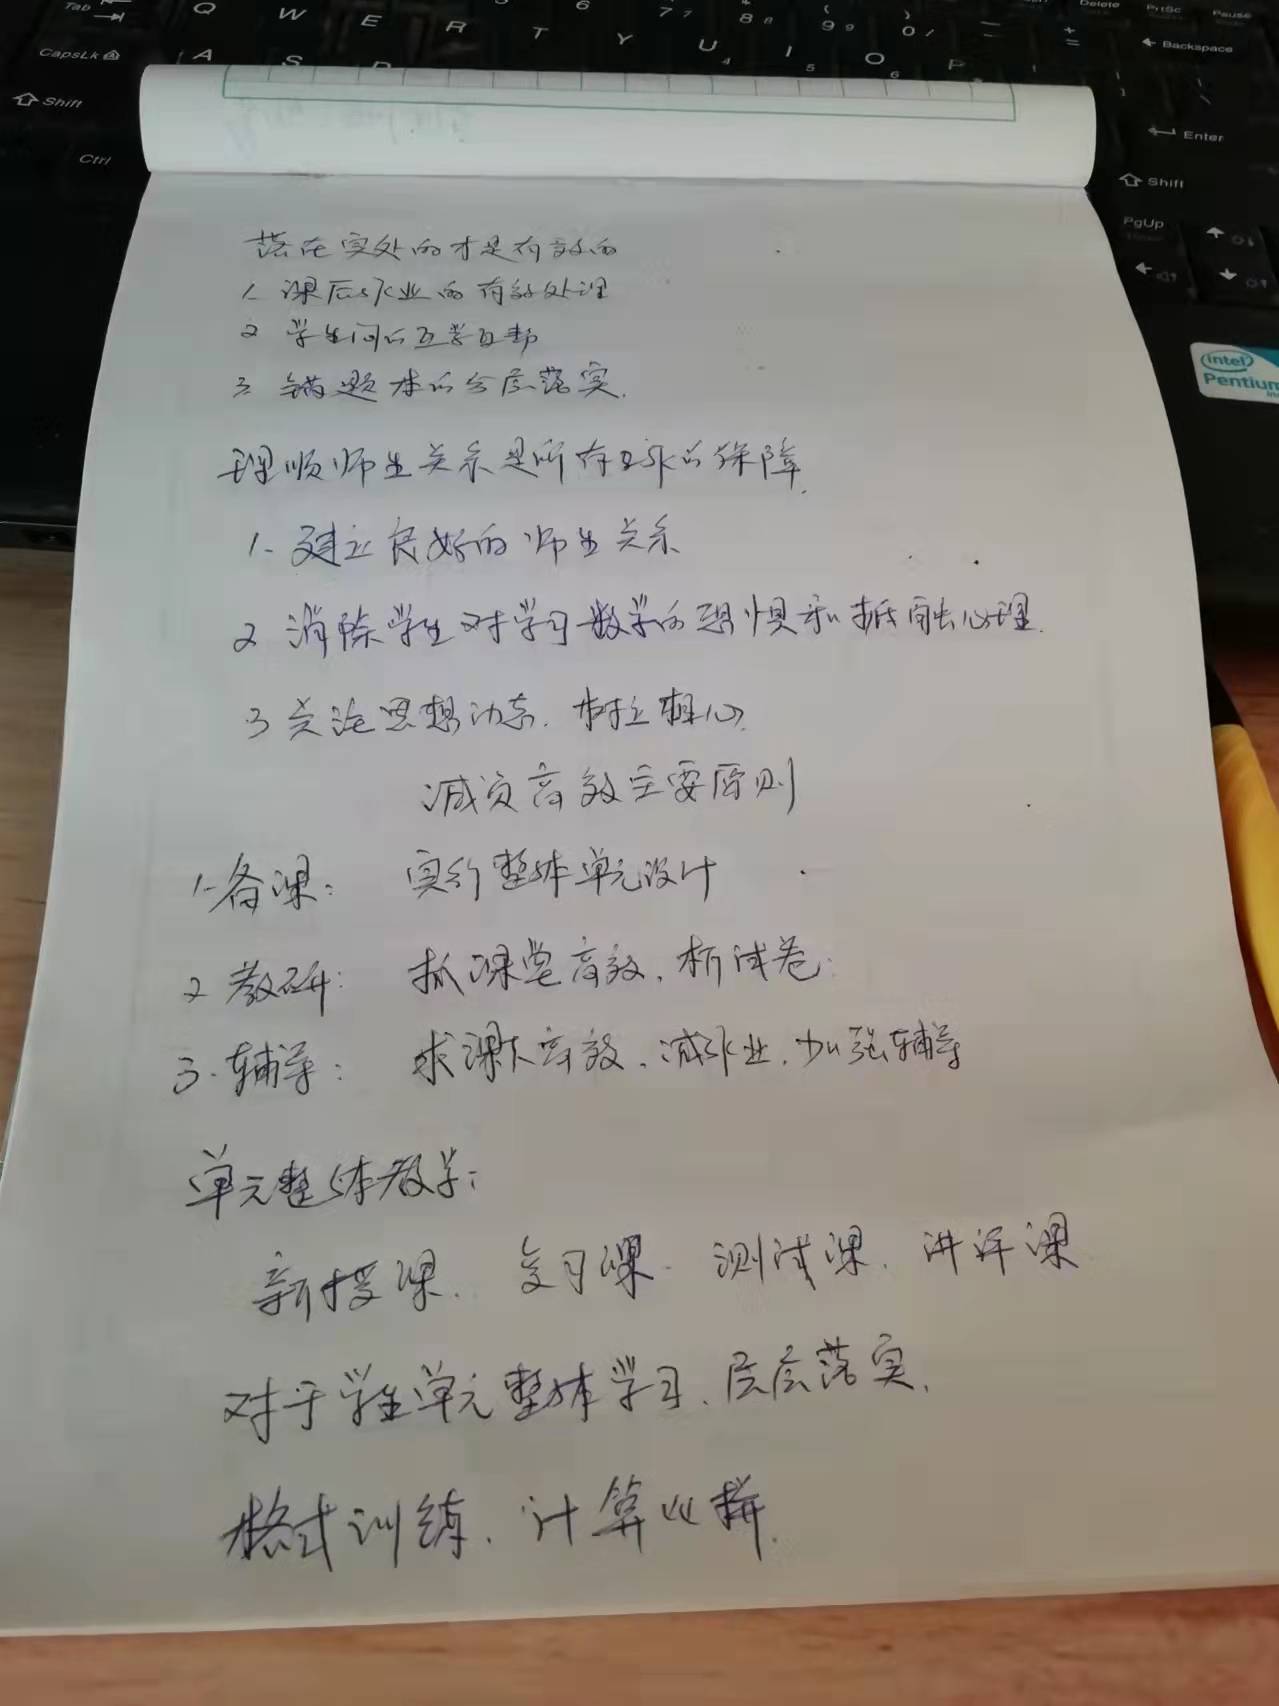 落在实处的才是有效的
1. 课后作业的有效处理
2 学生间的互学互帮
3. 错题本的分层落实.
理顺师生关系是所有工作的保障.
1. 建立良好的师生关系
2 消除学生对学习数学的恐惧和抵触心理.
3 关注思想动态. 树立信心.
减负高效主要原则
1. 备课: 实行整体单元设计
2 教研: 抓课堂高效. 析试卷.
3. 辅导: 求课下高效. 减作业. 加强辅导
单元整体教学:
新授课. 复习课. 测试课. 讲评课
对于学生单元整体学习. 层层落实.
格式训练. 计算
Tab Q W E R T Y U I O P
CapsLk A S
Shift
Ctrl
Delete PrtSc Pause
Backspace
Enter
Shift
PgUp
intel
Pentium